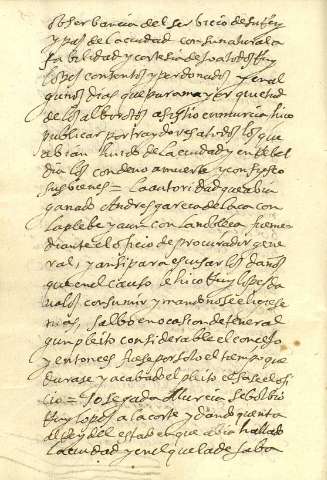 obserbancia del serbicio de su Rey
y paz de la ciudad con su natural a
fabilidad y cortesia dejo a todos Ruy
Lopez contentos y perdonados y en al
gunos dias que para mayor quietud
de los alborotos asistio en murcia hiço
publicar por traydores a todos los que
abian huido de la ciudad y en rebel
dia los condeno a muerte y confisco
sus bienes = la autoridad que abia
ganado Andres garcia de laça con
la plebe y aun con la nobleça fue me
diante el oficio de procurador gene
ral, y ansi para escusar los daños
que en el causo le hiço Ruy lopez Da
valos consumir y mando no se eligiese
mas, salbo en ocasion de tener al
gun pleito considerable el concejo
y entonces fuese por solo el tiempo que
durase y acabado el pleito cesase el ofi
cio = Sosegada Murcia se bolbio
Ruy lopez a la corte y dando quenta
al Rey del estado en que abia hallado
la ciudad y en el que la dejaba